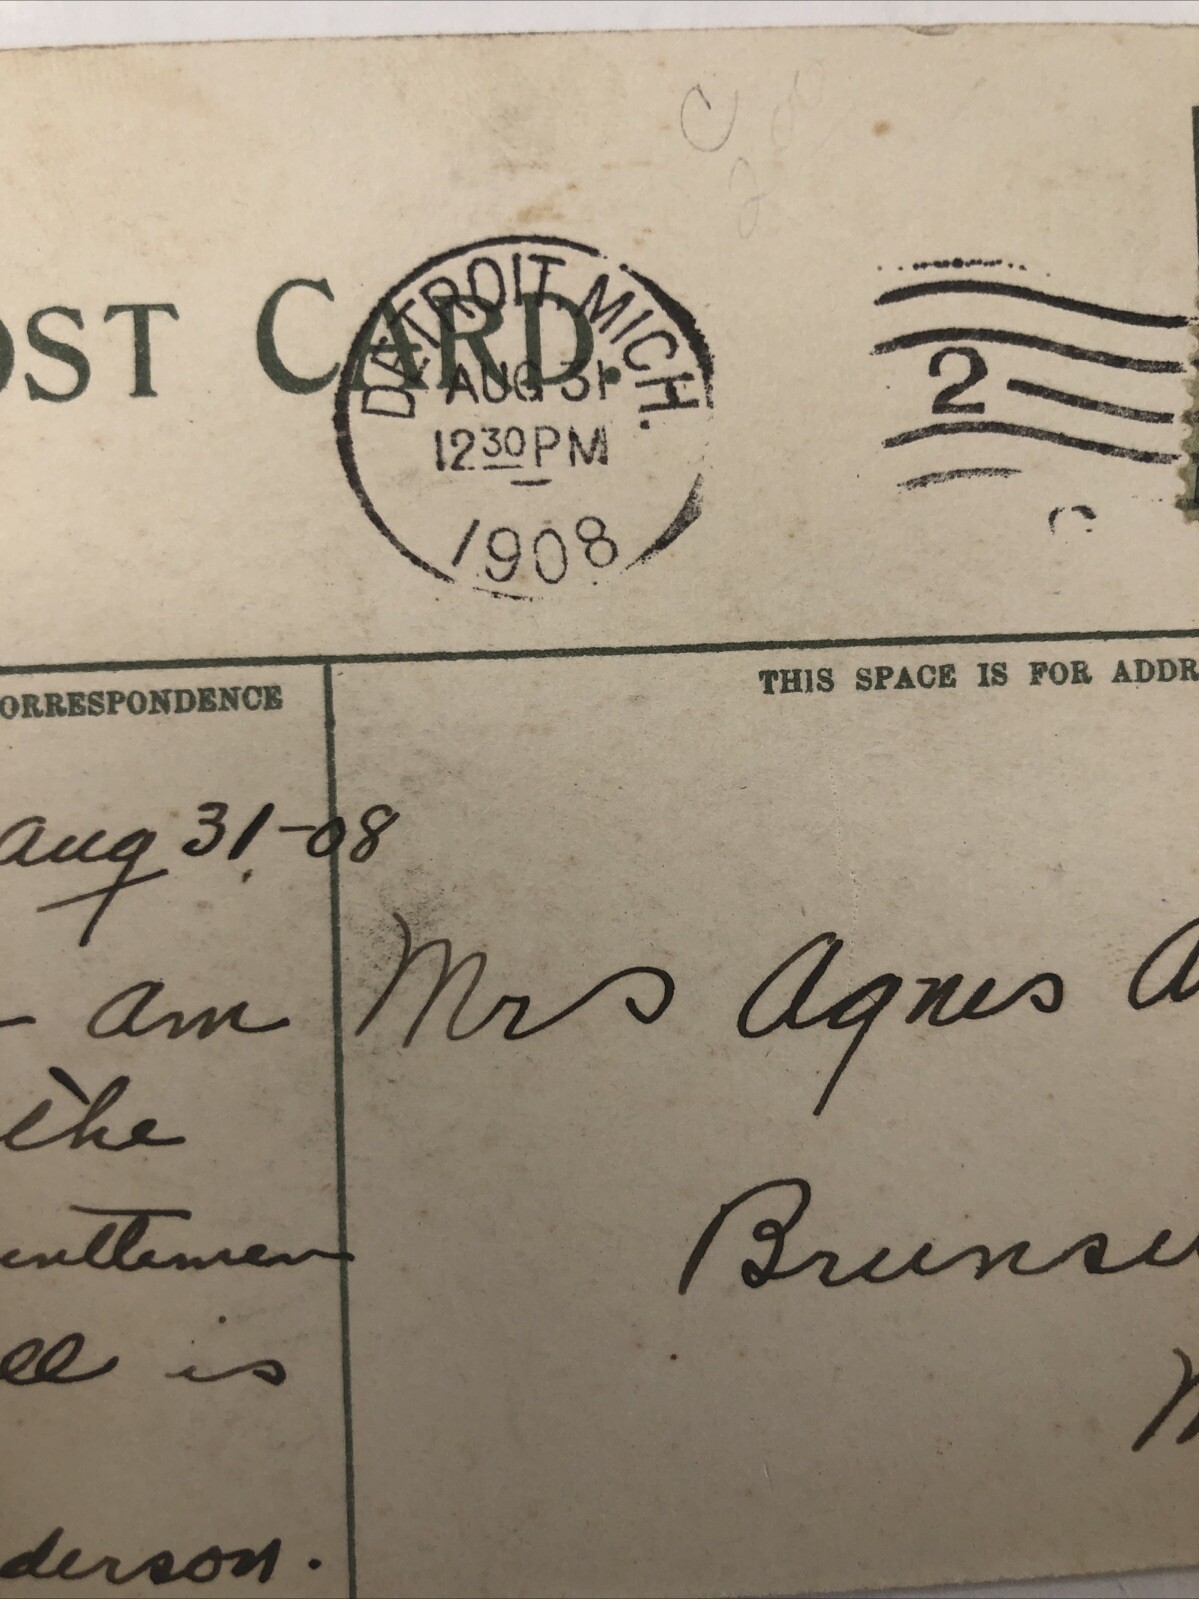 OST CARD.
DETROIT, MICH.
AUG 31
12 30 PM
1908
2
ORRESPONDENCE
THIS SPACE IS FOR ADDR
Aug 31-08
Mrs Agnes A
- am
the
Brunsw
ll is
derson.